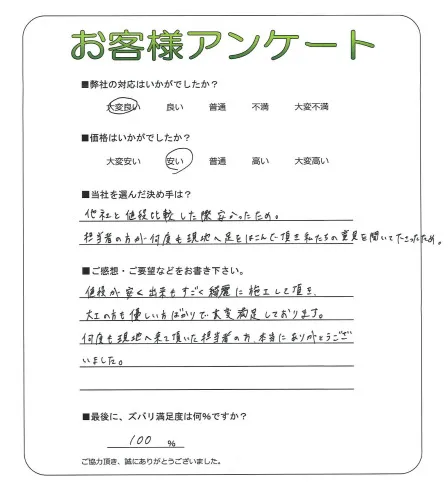 お客様アンケート
■弊社の対応はいかがでしたか?
大変良い 良い 普通 不満 大変不満
■価格はいかがでしたか?
大変安い 安い 普通 高い 大変高い
■当社を選んだ決め手は?
他社と値段比較した際安かったため。
担当者の方が何度も現地へ足をはこんで頂き私たちの意見を聞いて下さったため。
■ご感想・ご要望などをお書き下さい。
値段が安く出来もすごく綺麗に施工して頂き、
大工の方も優しい方ばかりで大変満足しております。
何度も現地へ来て頂いた担当者の方、本当にありがとうござ
いました。
■最後に、ズバリ満足度は何%ですか?
100 %
ご協力頂き、誠にありがとうございました。